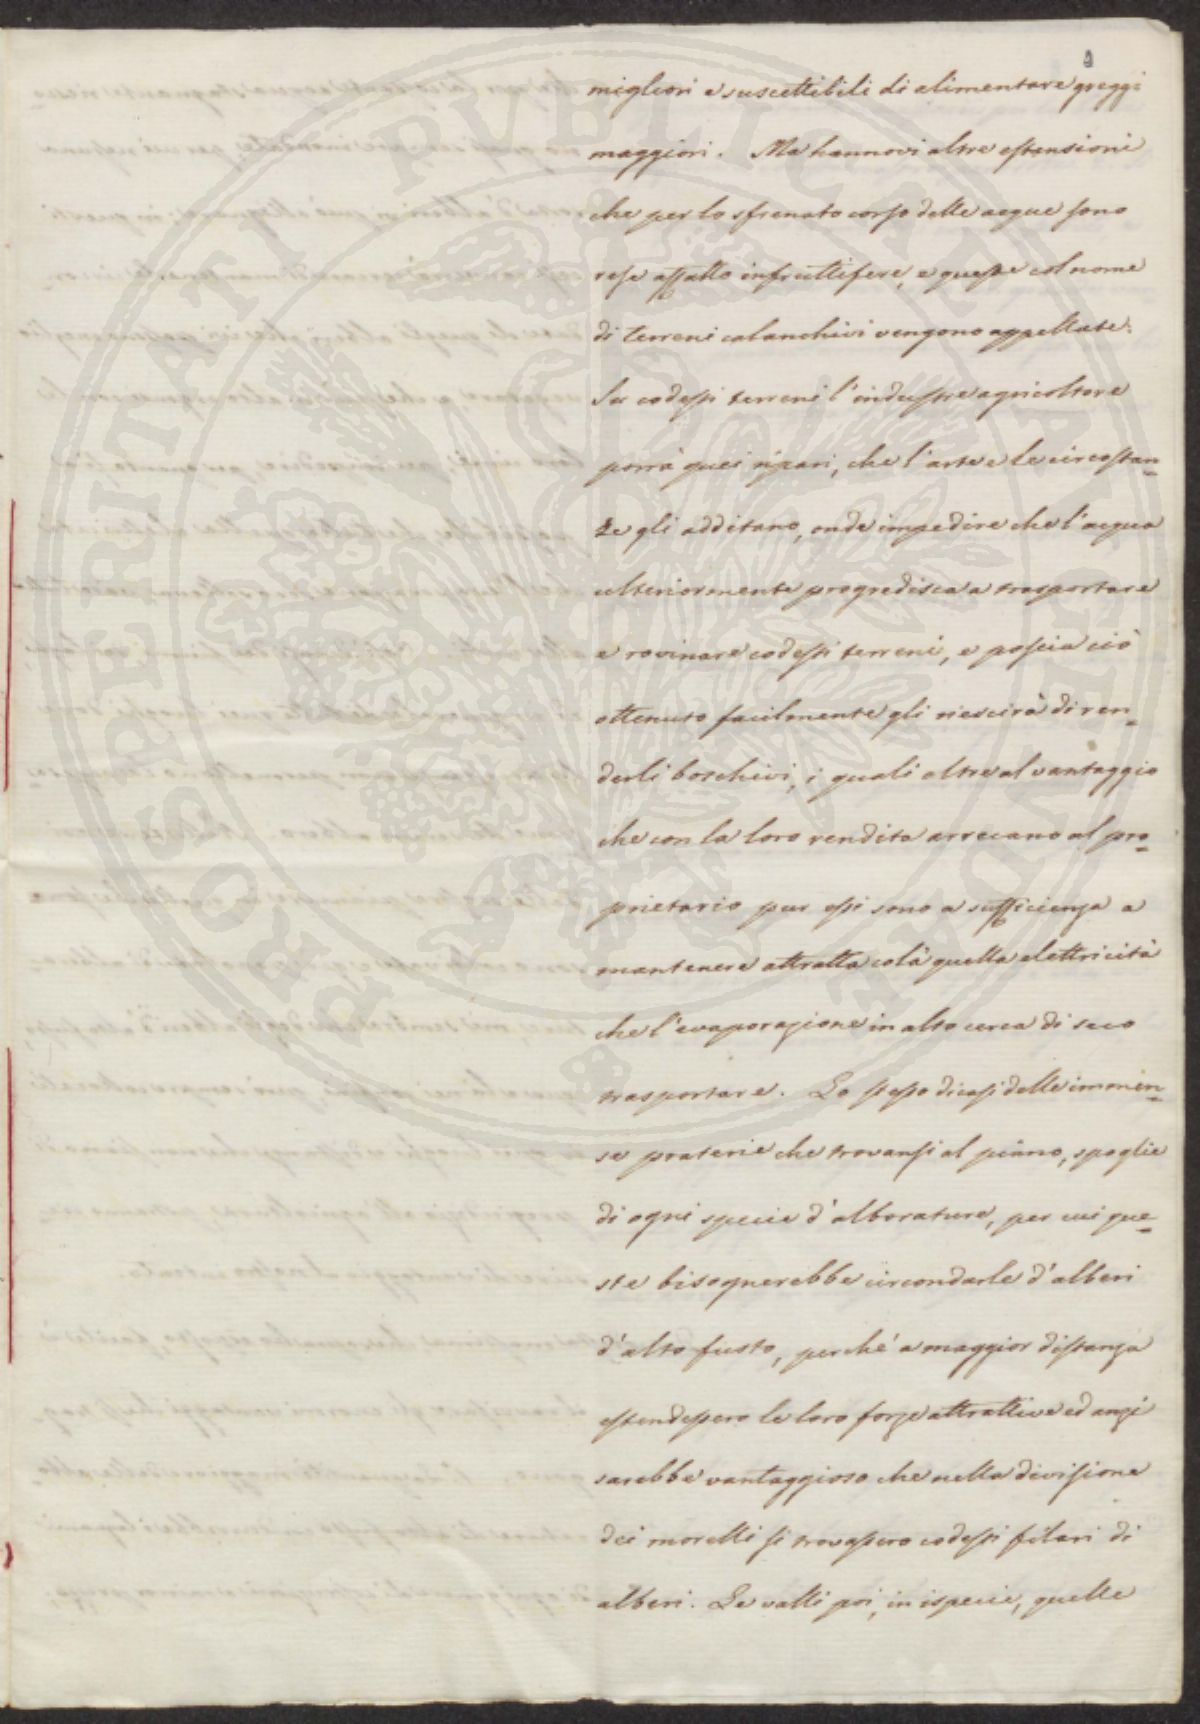 9
migliori e suscettibili di alimentare greggi
maggiori. Ma hannovi altre estensioni
che per lo sfrenato corso delle acque sono
rese affatto infruttifere, e queste col nome
di terreni calanchivi vengono appellate.
Su codesti terreni l'industre agricoltore
porrà quei ripari, che l'arte e le circostan-
ze gli additano, onde impedire che l'acqua
ulteriormente progredisca a trasportare
e rovinare codesti terreni, e poscia ciò
ottenuto facilmente gli riescirà di ren-
derli boschivi, i quali oltre al vantaggio
che con la loro rendita arrecano al pro-
prietario pur essi sono a sufficienza a
mantenere attratta colà quella elettricità
che l'evaporazione in alto cerca di seco
trasportare. Lo stesso dicasi delle immen-
se praterie che trovansi al piano, spoglie
di ogni specie d'alborature, per cui que-
ste bisognerebbe circondarle d'alberi
d'alto fusto, perchè a maggior distanza
estendessero le loro forze attrattive ed anzi
sarebbe vantaggioso che nella divisione
dei morelli si trovassero codesti filari di
alberi. Le valli poi, in ispecie, quelle
PROSPERITATI PVBLICAE AVGENDAE